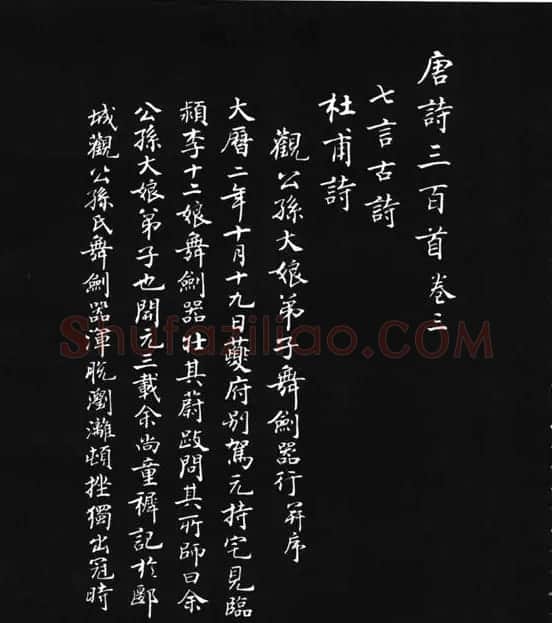 唐詩三百首 卷三
七言古詩
杜甫詩
觀公孫大娘弟子舞劍器行 并序
大曆二年十月十九日夔府別駕元持宅見臨
潁李十二娘舞劍器壯其蔚跂問其所師曰余
公孫大娘弟子也開元三載余尚童穉記於郾
城觀公孫氏舞劍器渾脫瀏灕頓挫獨出冠時
Shufaziliao.com